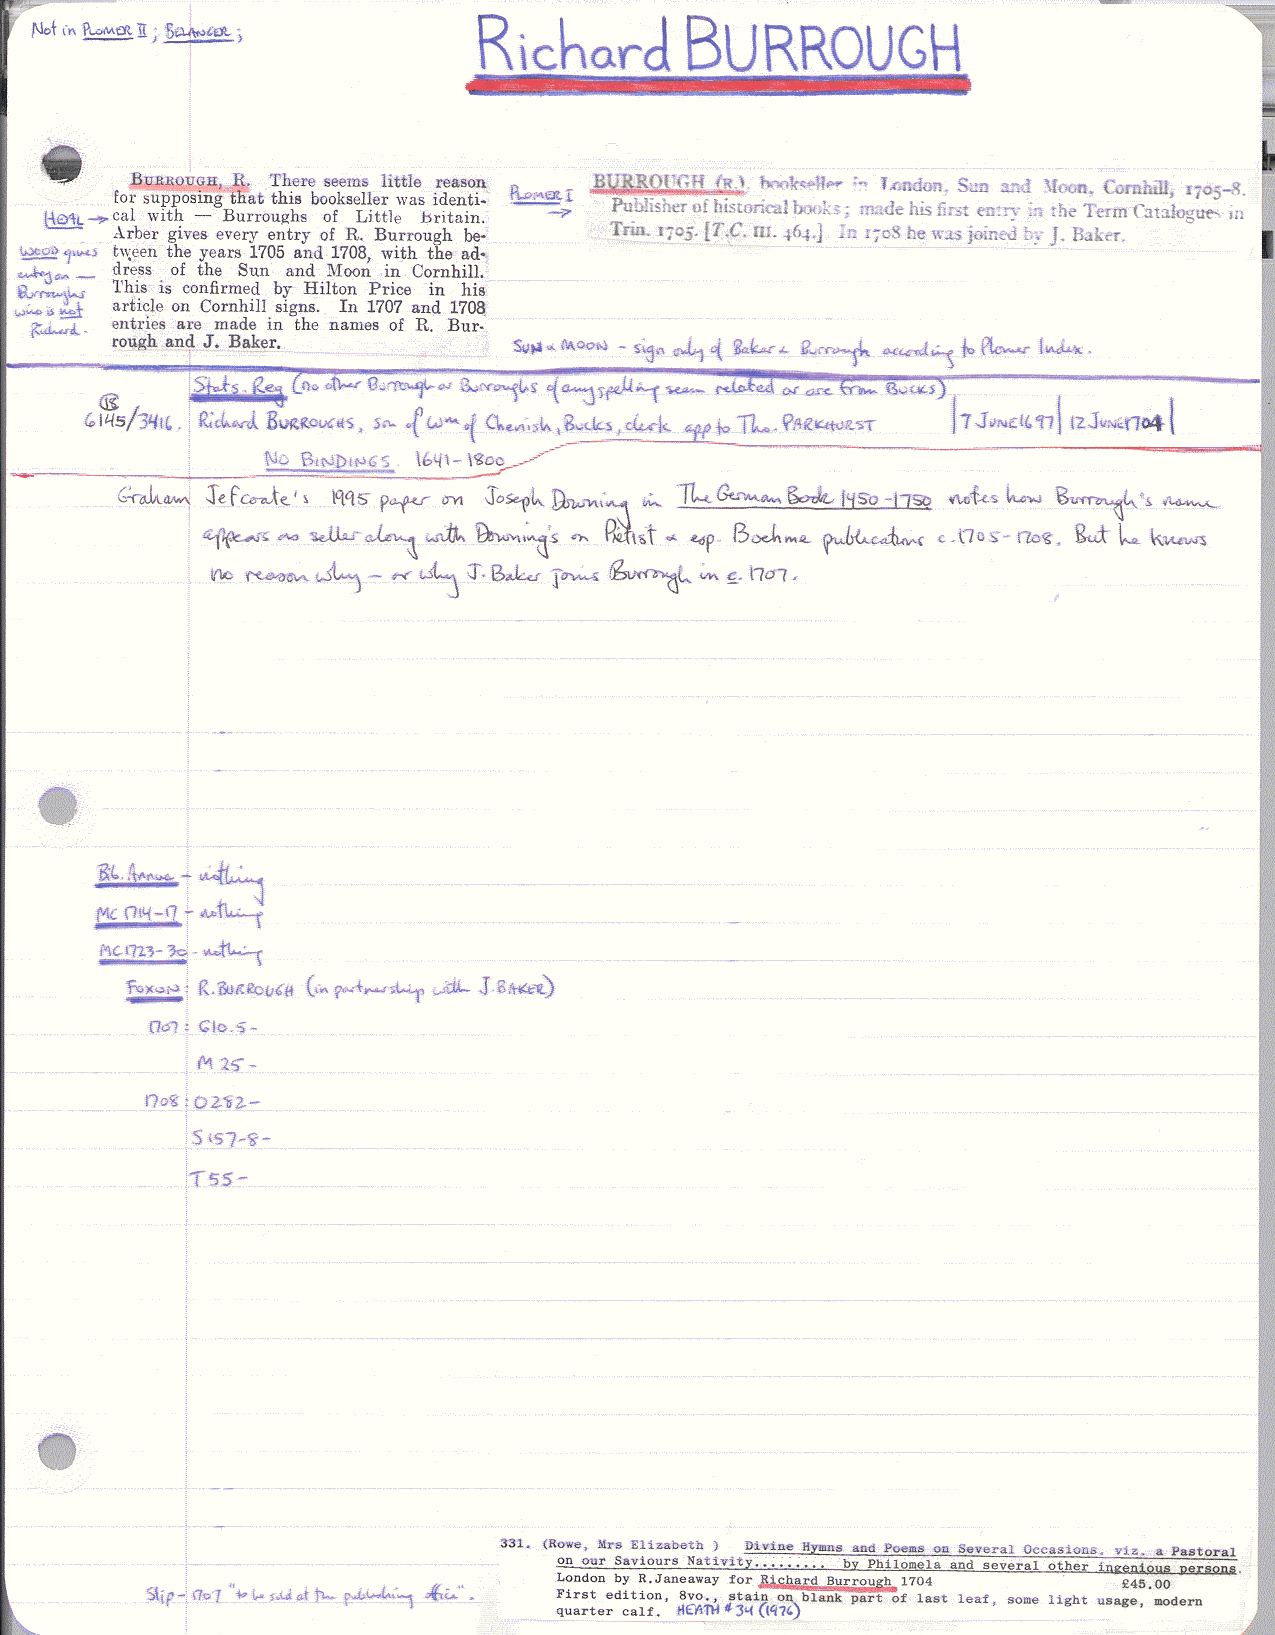 Not in PLOMER II; BELANGER;
Richard BURROUGH
BURROUGH, R. There seems little reason
for supposing that this bookseller was identi-
cal with — Burroughs of Little Britain.
Arber gives every entry of R. Burrough be-
tween the years 1705 and 1708, with the ad-
dress of the Sun and Moon in Cornhill.
This is confirmed by Hilton Price in his
article on Cornhill signs. In 1707 and 1708
entries are made in the names of R. Bur-
rough and J. Baker.
HOTL →
WOOD gives
entry on —
Burroughs
who is not
Richard.
PLOMER I
→
BURROUGH (R.), bookseller in London, Sun and Moon, Cornhill, 1705-8.
Publisher of historical books; made his first entry in the Term Catalogues in
Trin. 1705. [T.C. III. 464.] In 1708 he was joined by J. Baker.
SUN & MOON - sign only of Baker & Burrough according to Plomer Index.
Stats. Reg (no other Burrough or Burroughs of any spelling seem related or are from Bucks)
18
6145/3416. Richard BURROUGHS, son of Wm of Chenish, Bucks, clerk app to Tho. PARKHURST |7 JUNE 1697| 12 JUNE 1704|
NO BINDINGS 1641-1800
Graham Jefcoate's 1995 paper on Joseph Downing in The German Book 1450-1750 notes how Burrough's name
appears as seller along with Downing's on Pietist & esp. Boehme publications c.1705-1708. But he knows
no reason why - or why J. Baker joins Burrough in c. 1707.
Bib. Annua - nothing
MC 1714-17 - nothing
MC 1723-30 - nothing
FOXON: R. BURROUGH (in partnership with J. BAKER)
1707: G10.5-
M 25-
1708: O282-
S157-8-
T 55-
331. (Rowe, Mrs Elizabeth ) Divine Hymns and Poems on Several Occasions. viz. a Pastoral
on our Saviours Nativity......... by Philomela and several other ingenious persons.
London by R.Janeaway for Richard Burrough 1704 £45.00
First edition, 8vo., stain on blank part of last leaf, some light usage, modern
quarter calf. HEATH #34 (1976)
Slip - 1707 "to be sold at the publishing office".